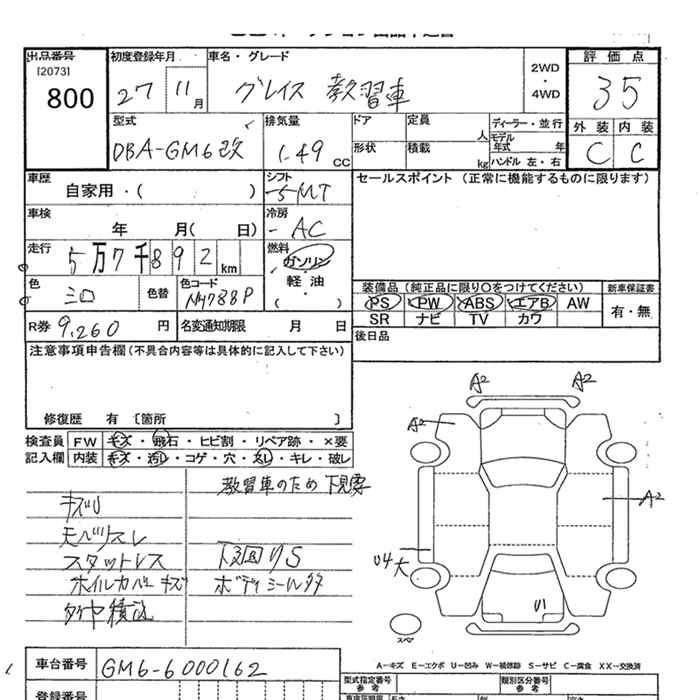 出品番号 初度登録年月 車名・グレード 2WD・4WD 評価点
[2073]
800 27 11月 グレイス 教習車 3.5
外装 内装
C C
型式 排気量 ドア 定員 人 ディーラー・並行
DBA-GM6改 1.49 CC 形状 積載 kg モデル年式 年 ハンドル 左・右
車歴 シフト セールスポイント (正常に機能するものに限ります)
自家用・( ) 5MT
車検 冷房
年 月( 日) AC
走行 燃料
5万7千892km ガソリン・軽油
色 色替 色コード ( ) 装備品 (純正品に限り○をつけてください) 新車保証書
シロ NH788P PS PW ABS エアB AW 有・無
SR ナビ TV カワ
R券 9,260 円 名変通知期限 月 日 後日品
注意事項申告欄 (不具合内容等は具体的に記入して下さい)
修復歴 有 [箇所 ]
検査員 FW キズ・飛石・ヒビ割・リペア跡・×要
記入欄 内装 キズ・汚レ・コゲ・穴・スレ・キレ・破レ
教習車のため下見要
キズリ
モールスレ
スタットレス 下回りS
ホイルカバーキズ ボディシール多
タイヤ積込
A2 A2
A2
A2
U4大
U1
スペア
A−キズ E−エクボ U−凹み W−補修跡 S−サビ C−腐食 XX−交換済
車台番号 GM6-6000162
型式指定番号 参考 類別区分番号 参考
登録番号